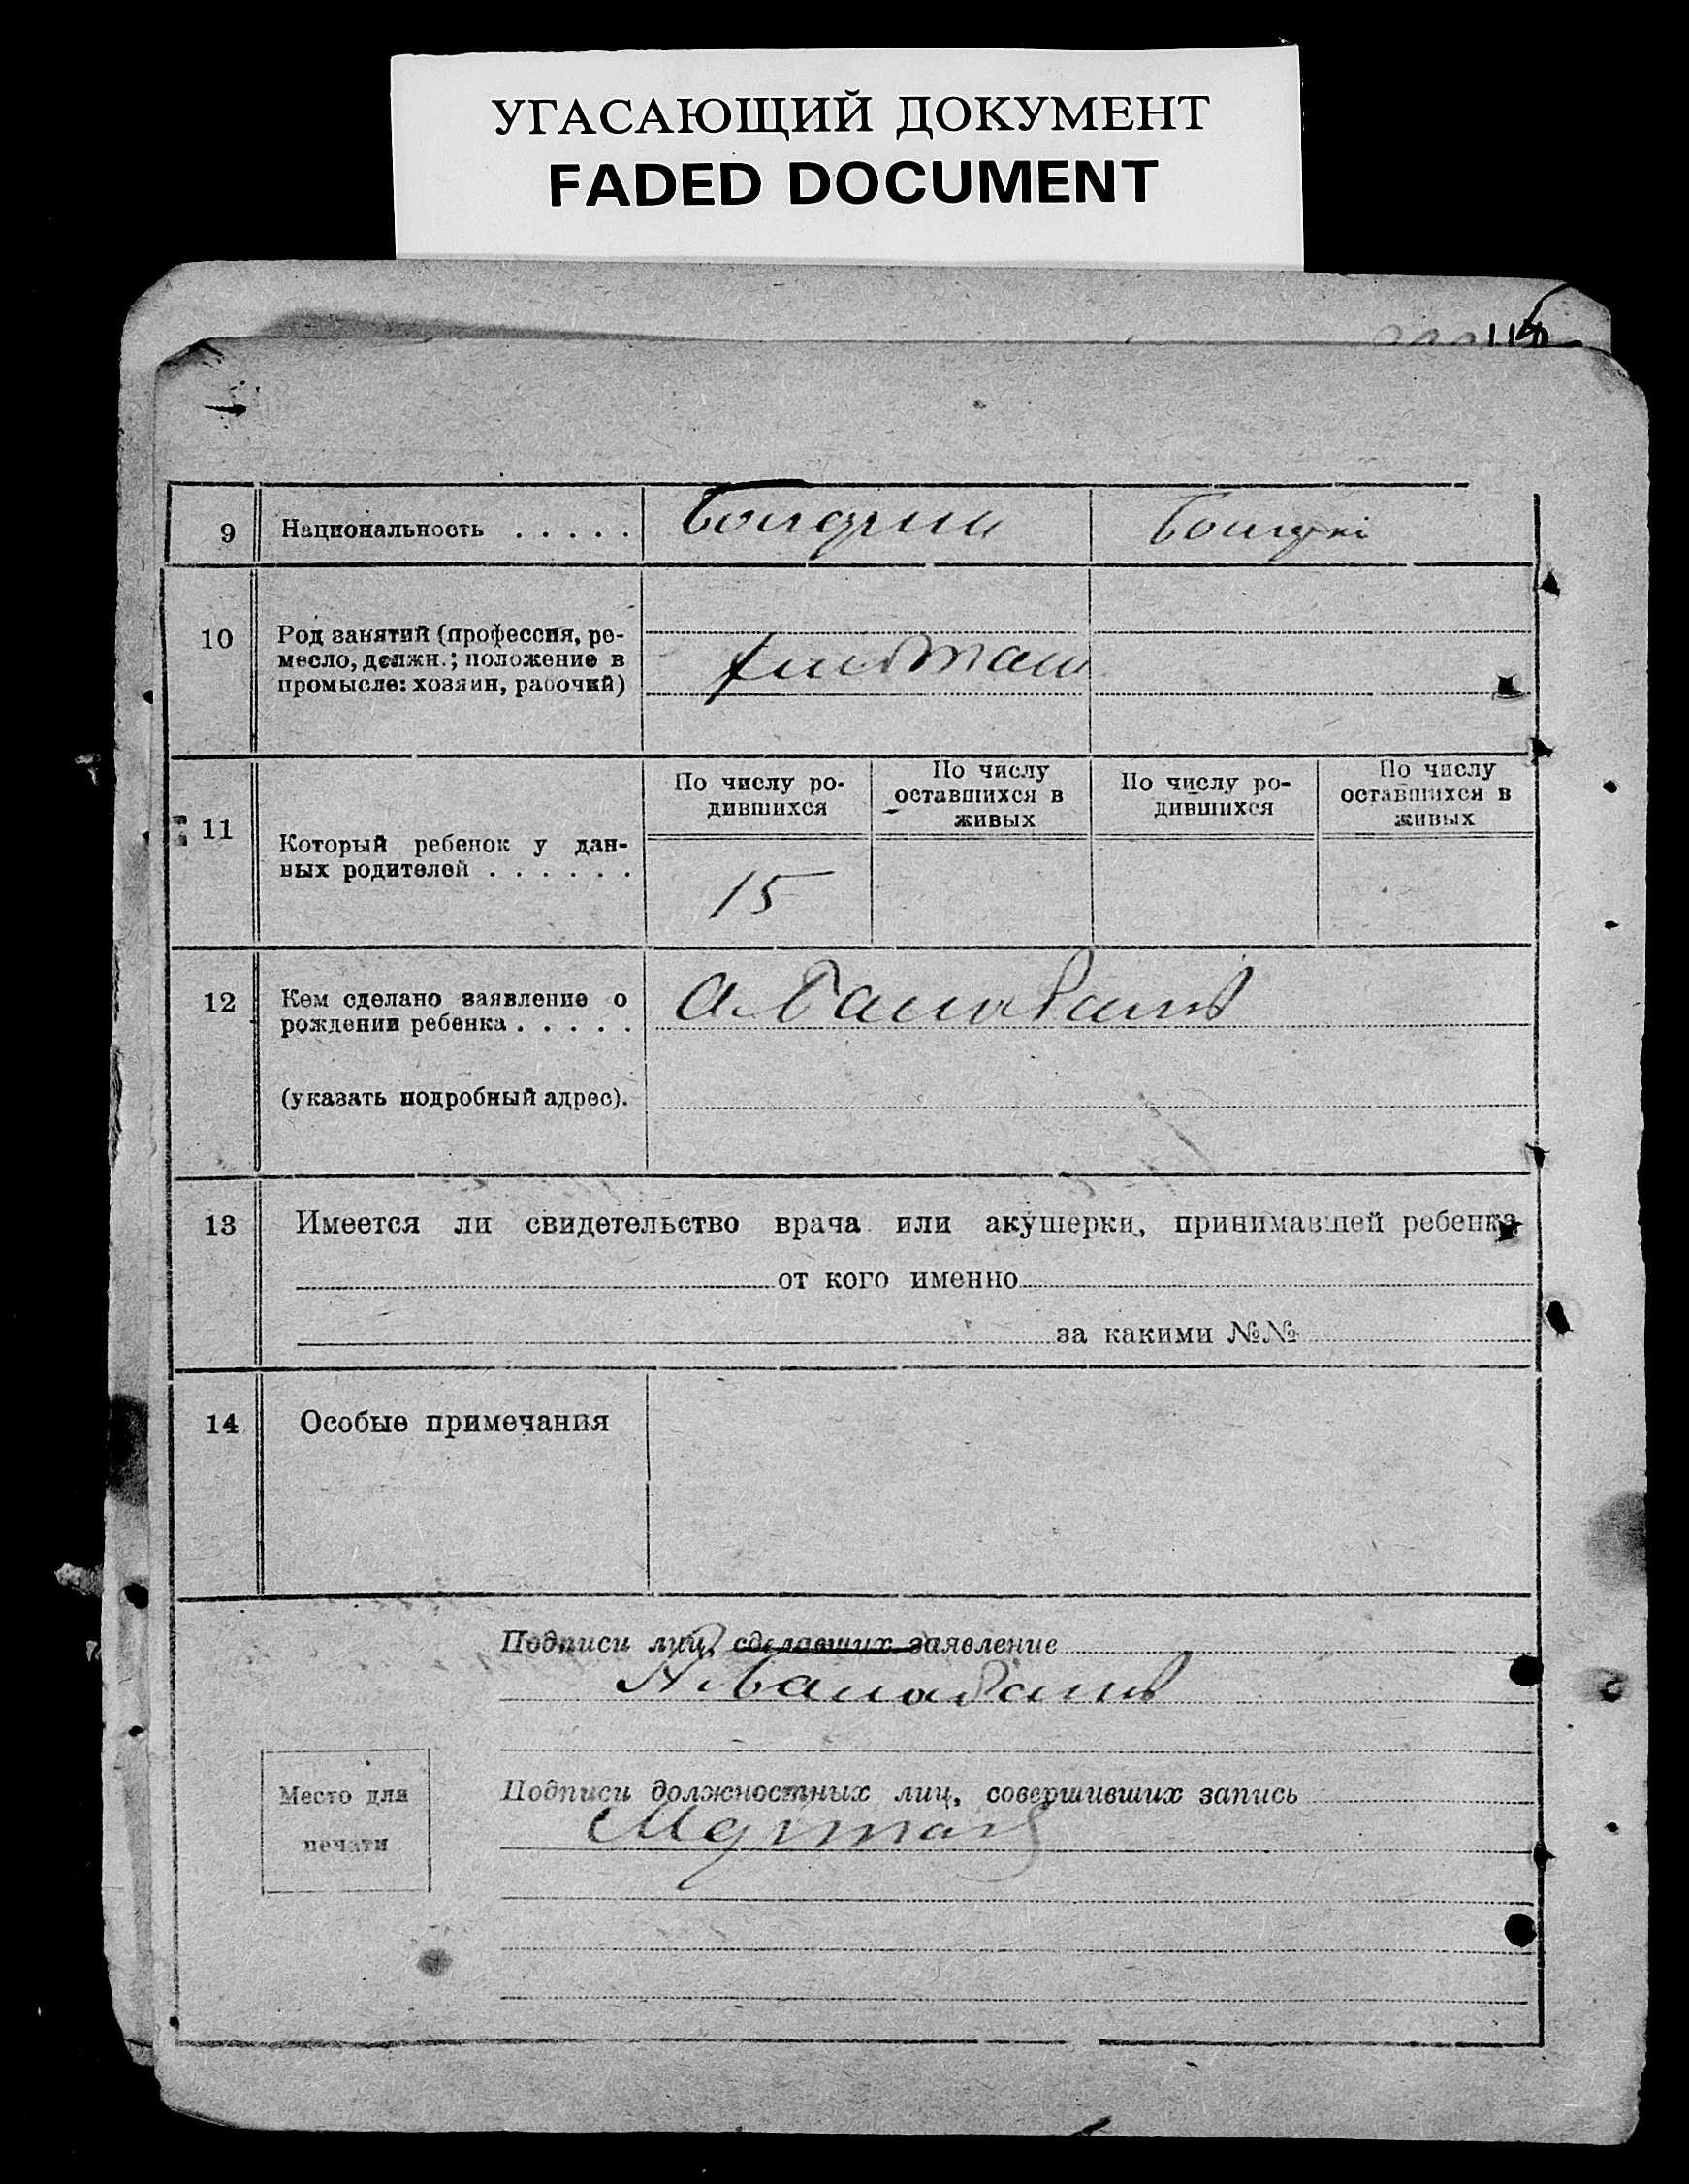 УГАСАЮЩИЙ ДОКУМЕНТ
FADED DOCUMENT
9 Национальность . . . . .
10 Род занятий (профессия, ре-
месло, должн.; положение в
промысле: хозяин, рабочий)
11 Который ребенок у дан-
ных родителей . . . . . .
По числу ро-
дившихся
По числу
оставшихся в
живых
По числу ро-
дившихся
По числу
оставшихся в
живых
15
12 Кем сделано заявление о
рождении ребенка . . . . .
(указать подробный адрес).
13 Имеется ли свидетельство врача или акушерки, принимавшей ребенка
от кого именно
за какими №№
14 Особые примечания
Подписи лиц, сделавших заявление
Место для
печати
Подписи должностных лиц, совершивших запись